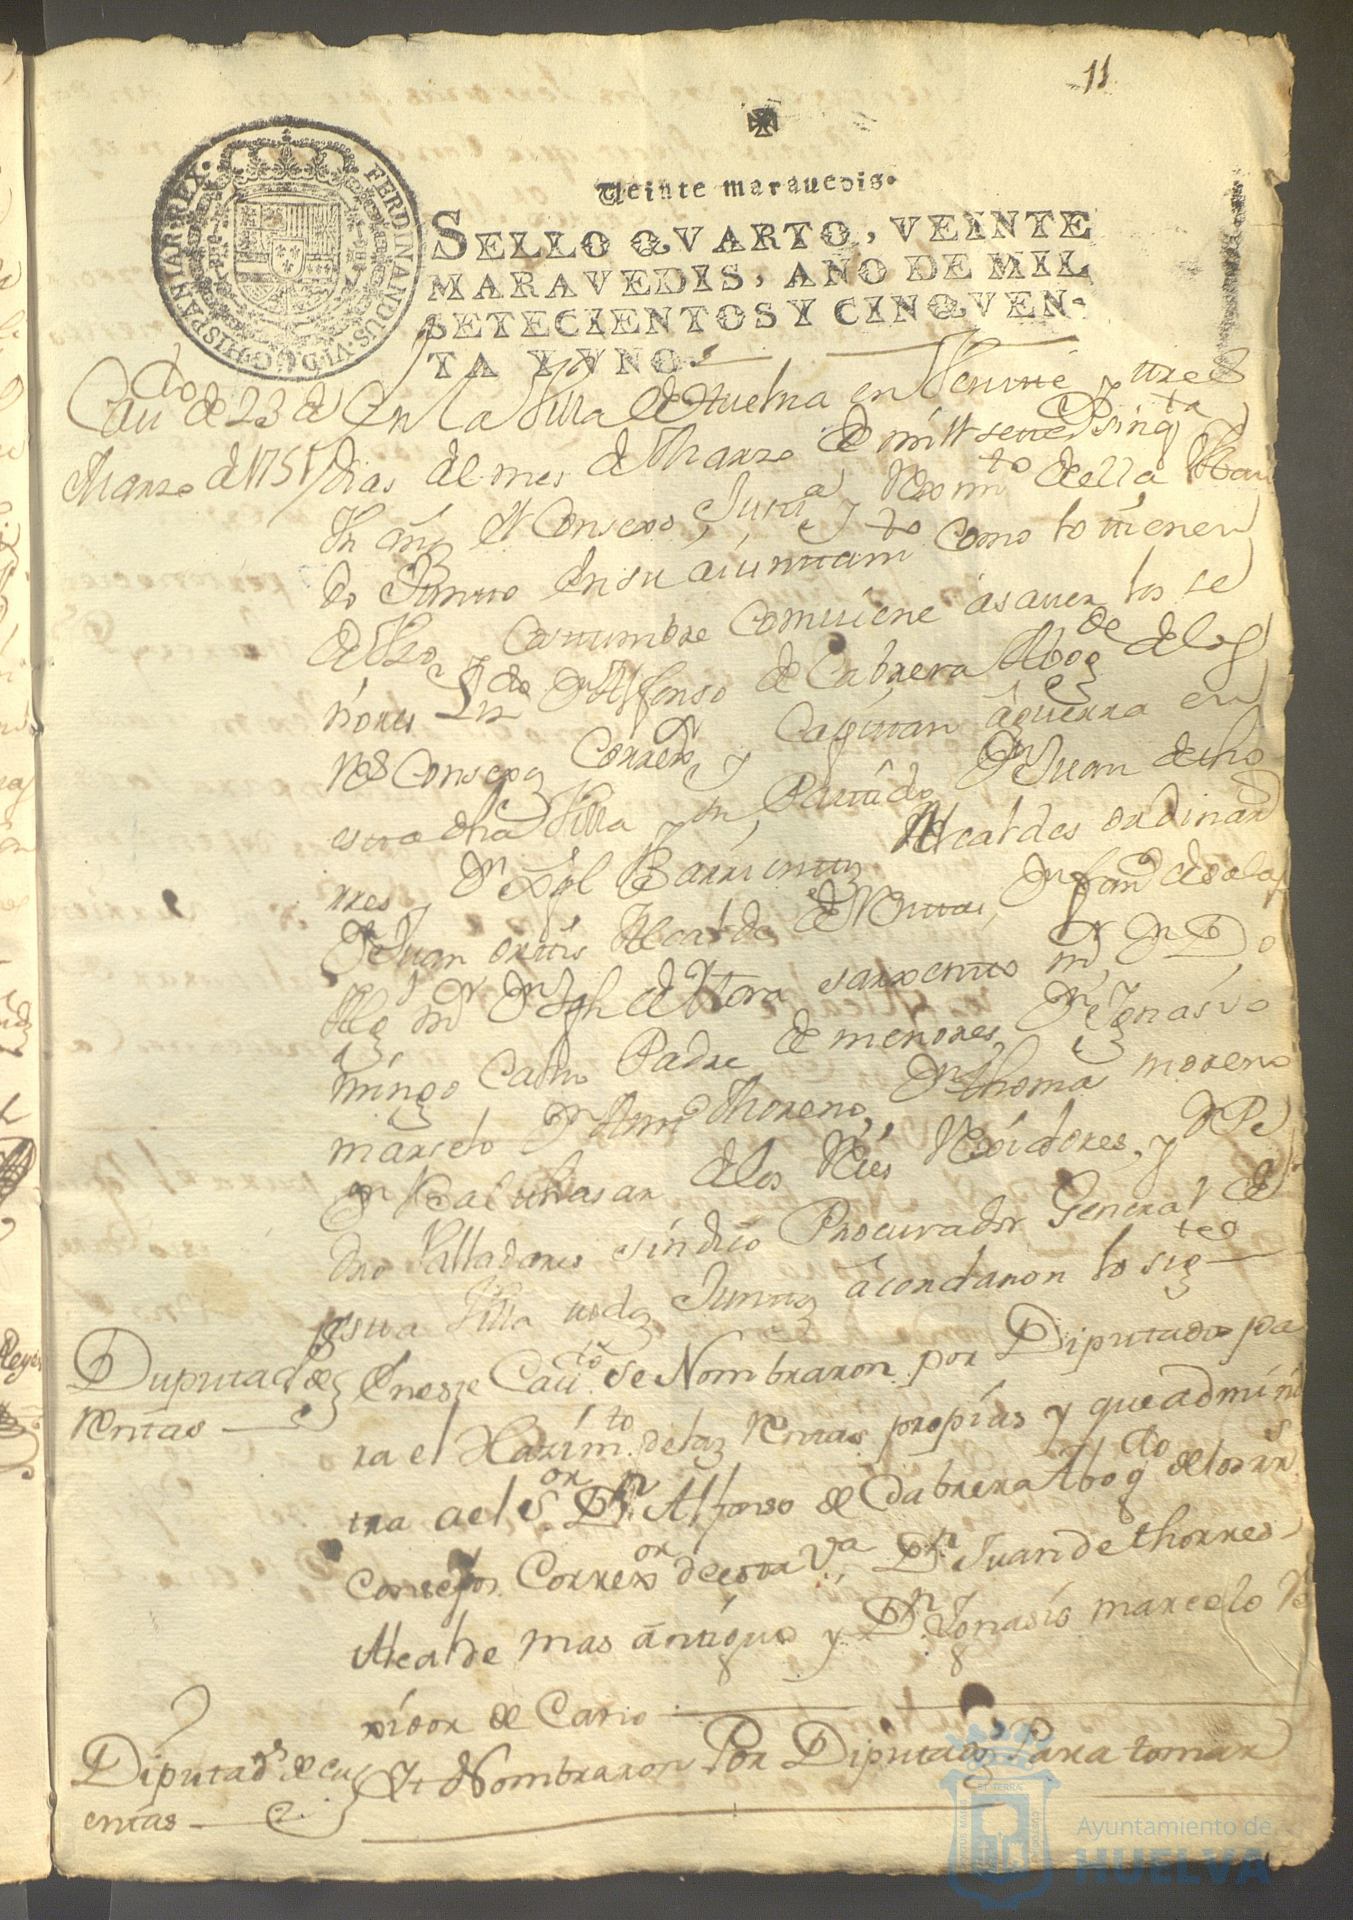 11
Veinte maravedis.
SELLO QVARTO, VEINTE
MARAVEDIS, AÑO DE MIL
SETECIENTOS Y CINQVEN-
TA Y VNO.
FERDINANDUS·VI·D·G·HISPANIAR·REX·
Cau^do de 23 de
Marzo d 1751
En la Villa de Huelva en Veinte y tres
dias del mes de Marzo de mill sete^s sinq^ta
el Consexo, Just^a y Rexim^to della
do Junto en su aiuntam^to como lo tienen
de Uso, y Costumbre Comviene asaver los se
ñores Lz^do Dn Alfonso de Cabrera Abog^do de los
R^s Consexos Corre^or y Capitan aguerra en
esta dha Villa y su Partido, Dn Juan de tho
rres, Dn Xpl Barrientos Alcaldes ordinar^s
Dn Juan ortis Alcalde de
m^or Dn Jph de Mora sarxento m^or Dn Do
mingo Calvo Padre de menores, Dn Ygnasio
marselo Dn Ant^o Moreno, Dn thomas moreno
Dn Balthasar delos Rios Rexidores, y Dn Pe
dro Valladares sindico Procurador General de
esta Villa todos Juntos acordaron lo sig^te
Duputad^s de
Rentas
En este Cau^to se Nombraron por Diputados pa
ra el Hazim^to de las Rentas propias y que admini
tra a el S^or Dn Alfonso de Cabrera Abog^do de los R^s
Consejos Correx^or de esta V^a, Dn Juan de thorres
Alcalde mas antiguo y Dn Ygnasio marcelo Re
xidor de Cavio
Diputad^s de cu
entas
Yt Nombraron Por Diputados Para tomar
Ayuntamiento de
HUELVA